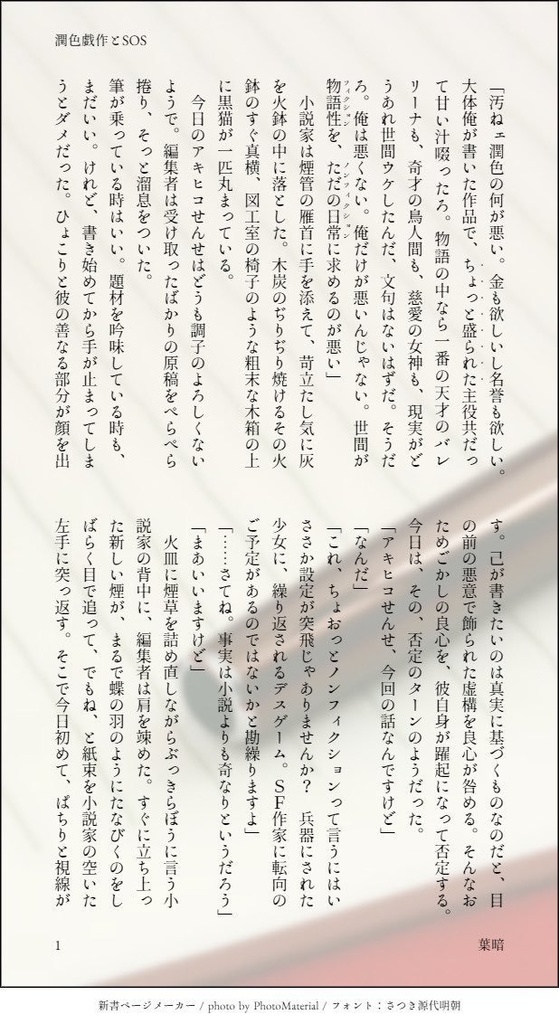 潤色戯作とSOS
「汚ねェ潤色の何が悪い。金も欲しいし名誉も欲しい。
大体俺が書いた作品で、ちょっと盛られた主役共だっ
て甘い汁啜ったろ。物語の中なら一番の天才のバレ
リーナも、奇才の鳥人間も、慈愛の女神も、現実がど
うあれ世間ウケしたんだ、文句はないはずだ。そうだ
ろ。俺は悪くない。俺だけが悪いんじゃない。世間が
物語性を、ただの日常に求めるのが悪い」
フィクション ノンフィクション
小説家は煙管の雁首に手を添えて、苛立たし気に灰
を火鉢の中に落とした。木炭のぢりぢり焼けるその火
鉢のすぐ真横、図工室の椅子のような粗末な木箱の上
に黒猫が一匹丸まっている。
今日のアキヒコせんせはどうも調子のよろしくない
ようで。編集者は受け取ったばかりの原稿をぺらぺら
捲り、そっと溜息をついた。
筆が乗っている時はいい。題材を吟味している時も、
まだいい。けれど、書き始めてから手が止まってしま
うとダメだった。ひょこりと彼の善なる部分が顔を出
す。己が書きたいのは真実に基づくものなのだと、目
の前の悪意で飾られた虚構を良心が咎める。そんなお
ためごかしの良心を、彼自身が躍起になって否定する。
今日は、その、否定のターンのようだった。
「アキヒコせんせ、今回の話なんですけど」
「なんだ」
「これ、ちょおっとノンフィクションって言うにはい
ささか設定が突飛じゃありませんか？ 兵器にされた
少女に、繰り返されるデスゲーム。ＳＦ作家に転向の
ご予定があるのではないかと勘繰りますよ」
「……さてね。事実は小説よりも奇なりというだろう」
「まあいいますけど」
火皿に煙草を詰め直しながらぶっきらぼうに言う小
説家の背中に、編集者は肩を竦めた。すぐに立ち上っ
た新しい煙が、まるで蝶の羽のようにたなびくのをし
ばらく目で追って、でもね、と紙束を小説家の空いた
左手に突っ返す。そこで今日初めて、ぱちりと視線が
1
葉暗
新書ページメーカー / photo by PhotoMaterial / フォント：さつき源代明朝